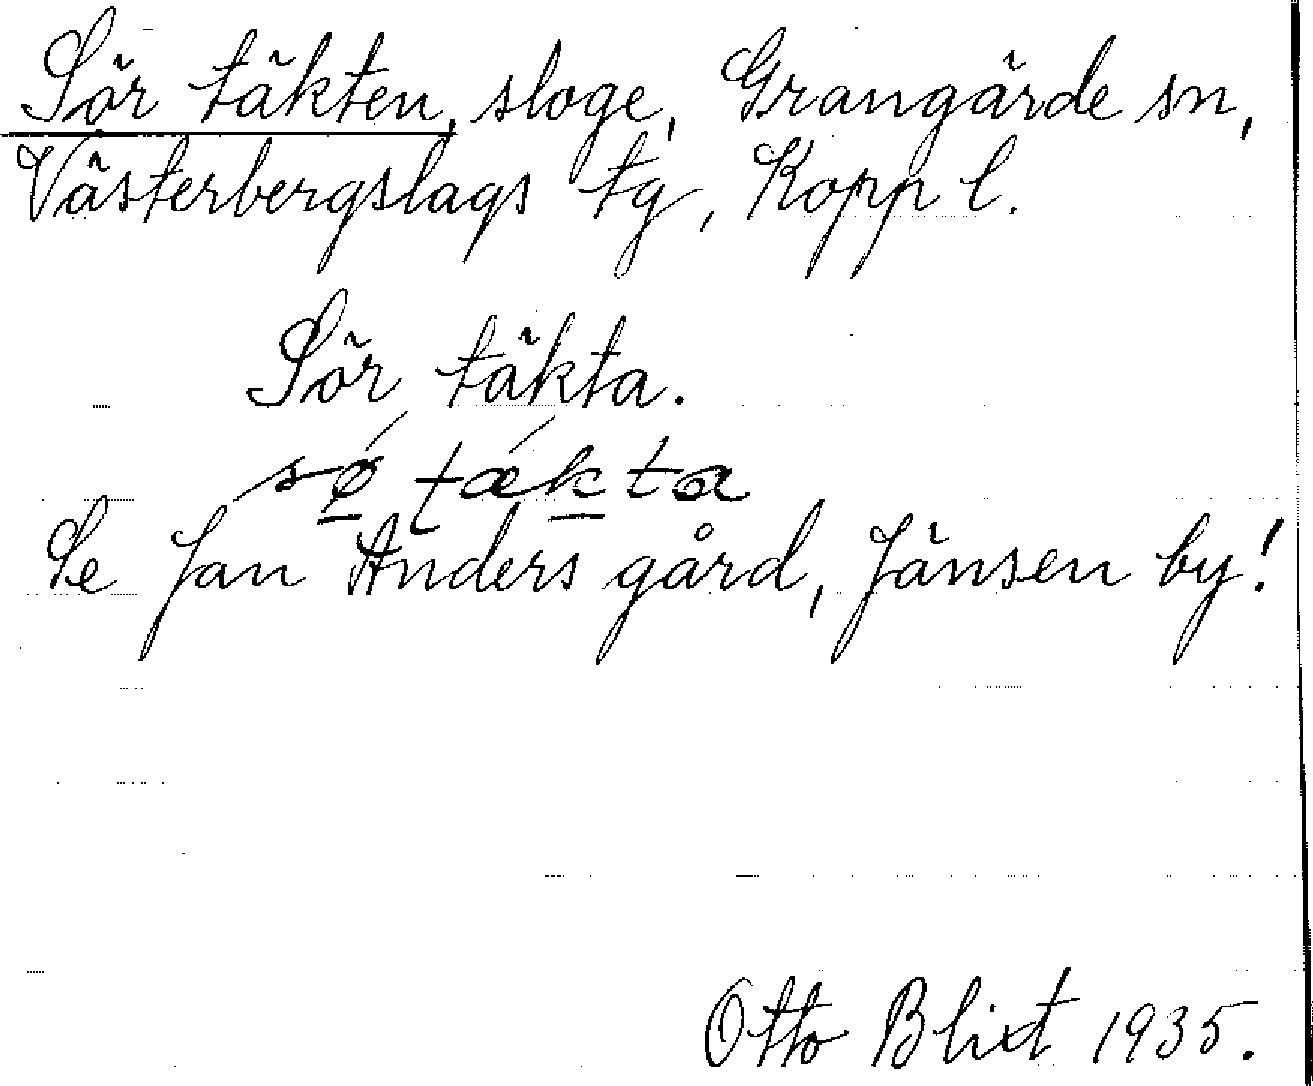 Sör täkten, sloge, Grangärde sn,
Västerbergslags tg, Kopp l.
Sör täkta.
sǿ̲ tǽk̲ta
Se Jan Anders gård, Jänsen by!
Otto Blixt 1935.